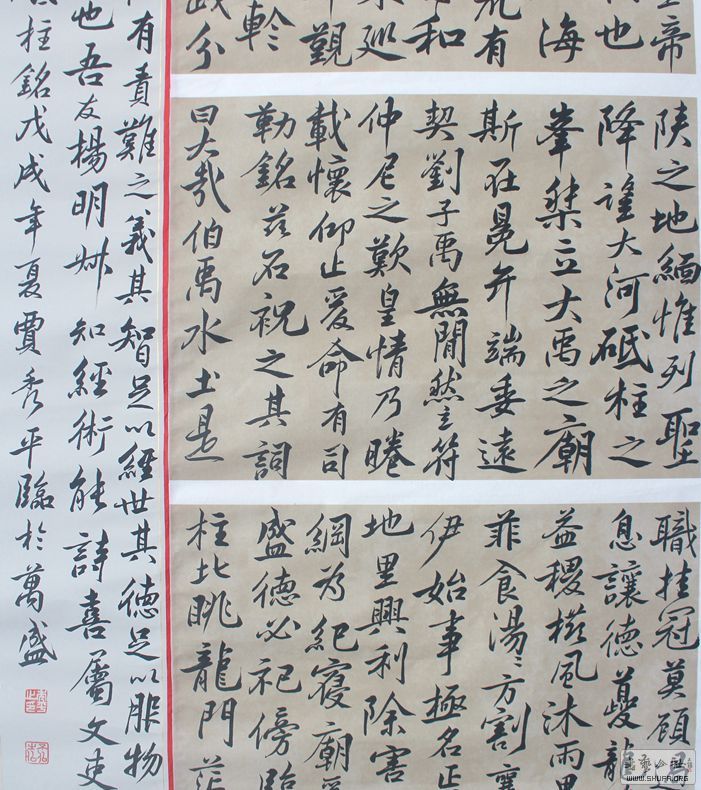 帝
也
海
有
和
巡
覲
軫
踐分
陝之地緬惟列聖
降望大河砥柱之
峯桀立大禹之廟
斯在冕弁端委遠
契劉子禹無間然玄符
仲尼之歎皇情乃睠
載懷仰止爰命有司
勒銘茲石祝之其詞
曰大哉伯禹水土是
職挂冠莫顧
息讓德夔龍
益稷櫛風沐雨
菲食湯〻方割襄
伊始事極名正
地里興利除害
綱為紀寢廟
盛德必祀傍臨
柱北眺龍門茫
有責難之義其智足以經世其德足以服物
也吾友楊明叔知經術能詩喜屬文吏
柱銘戊戌年夏賈秀平臨於萬盛
WWW.SHUFA.ORG